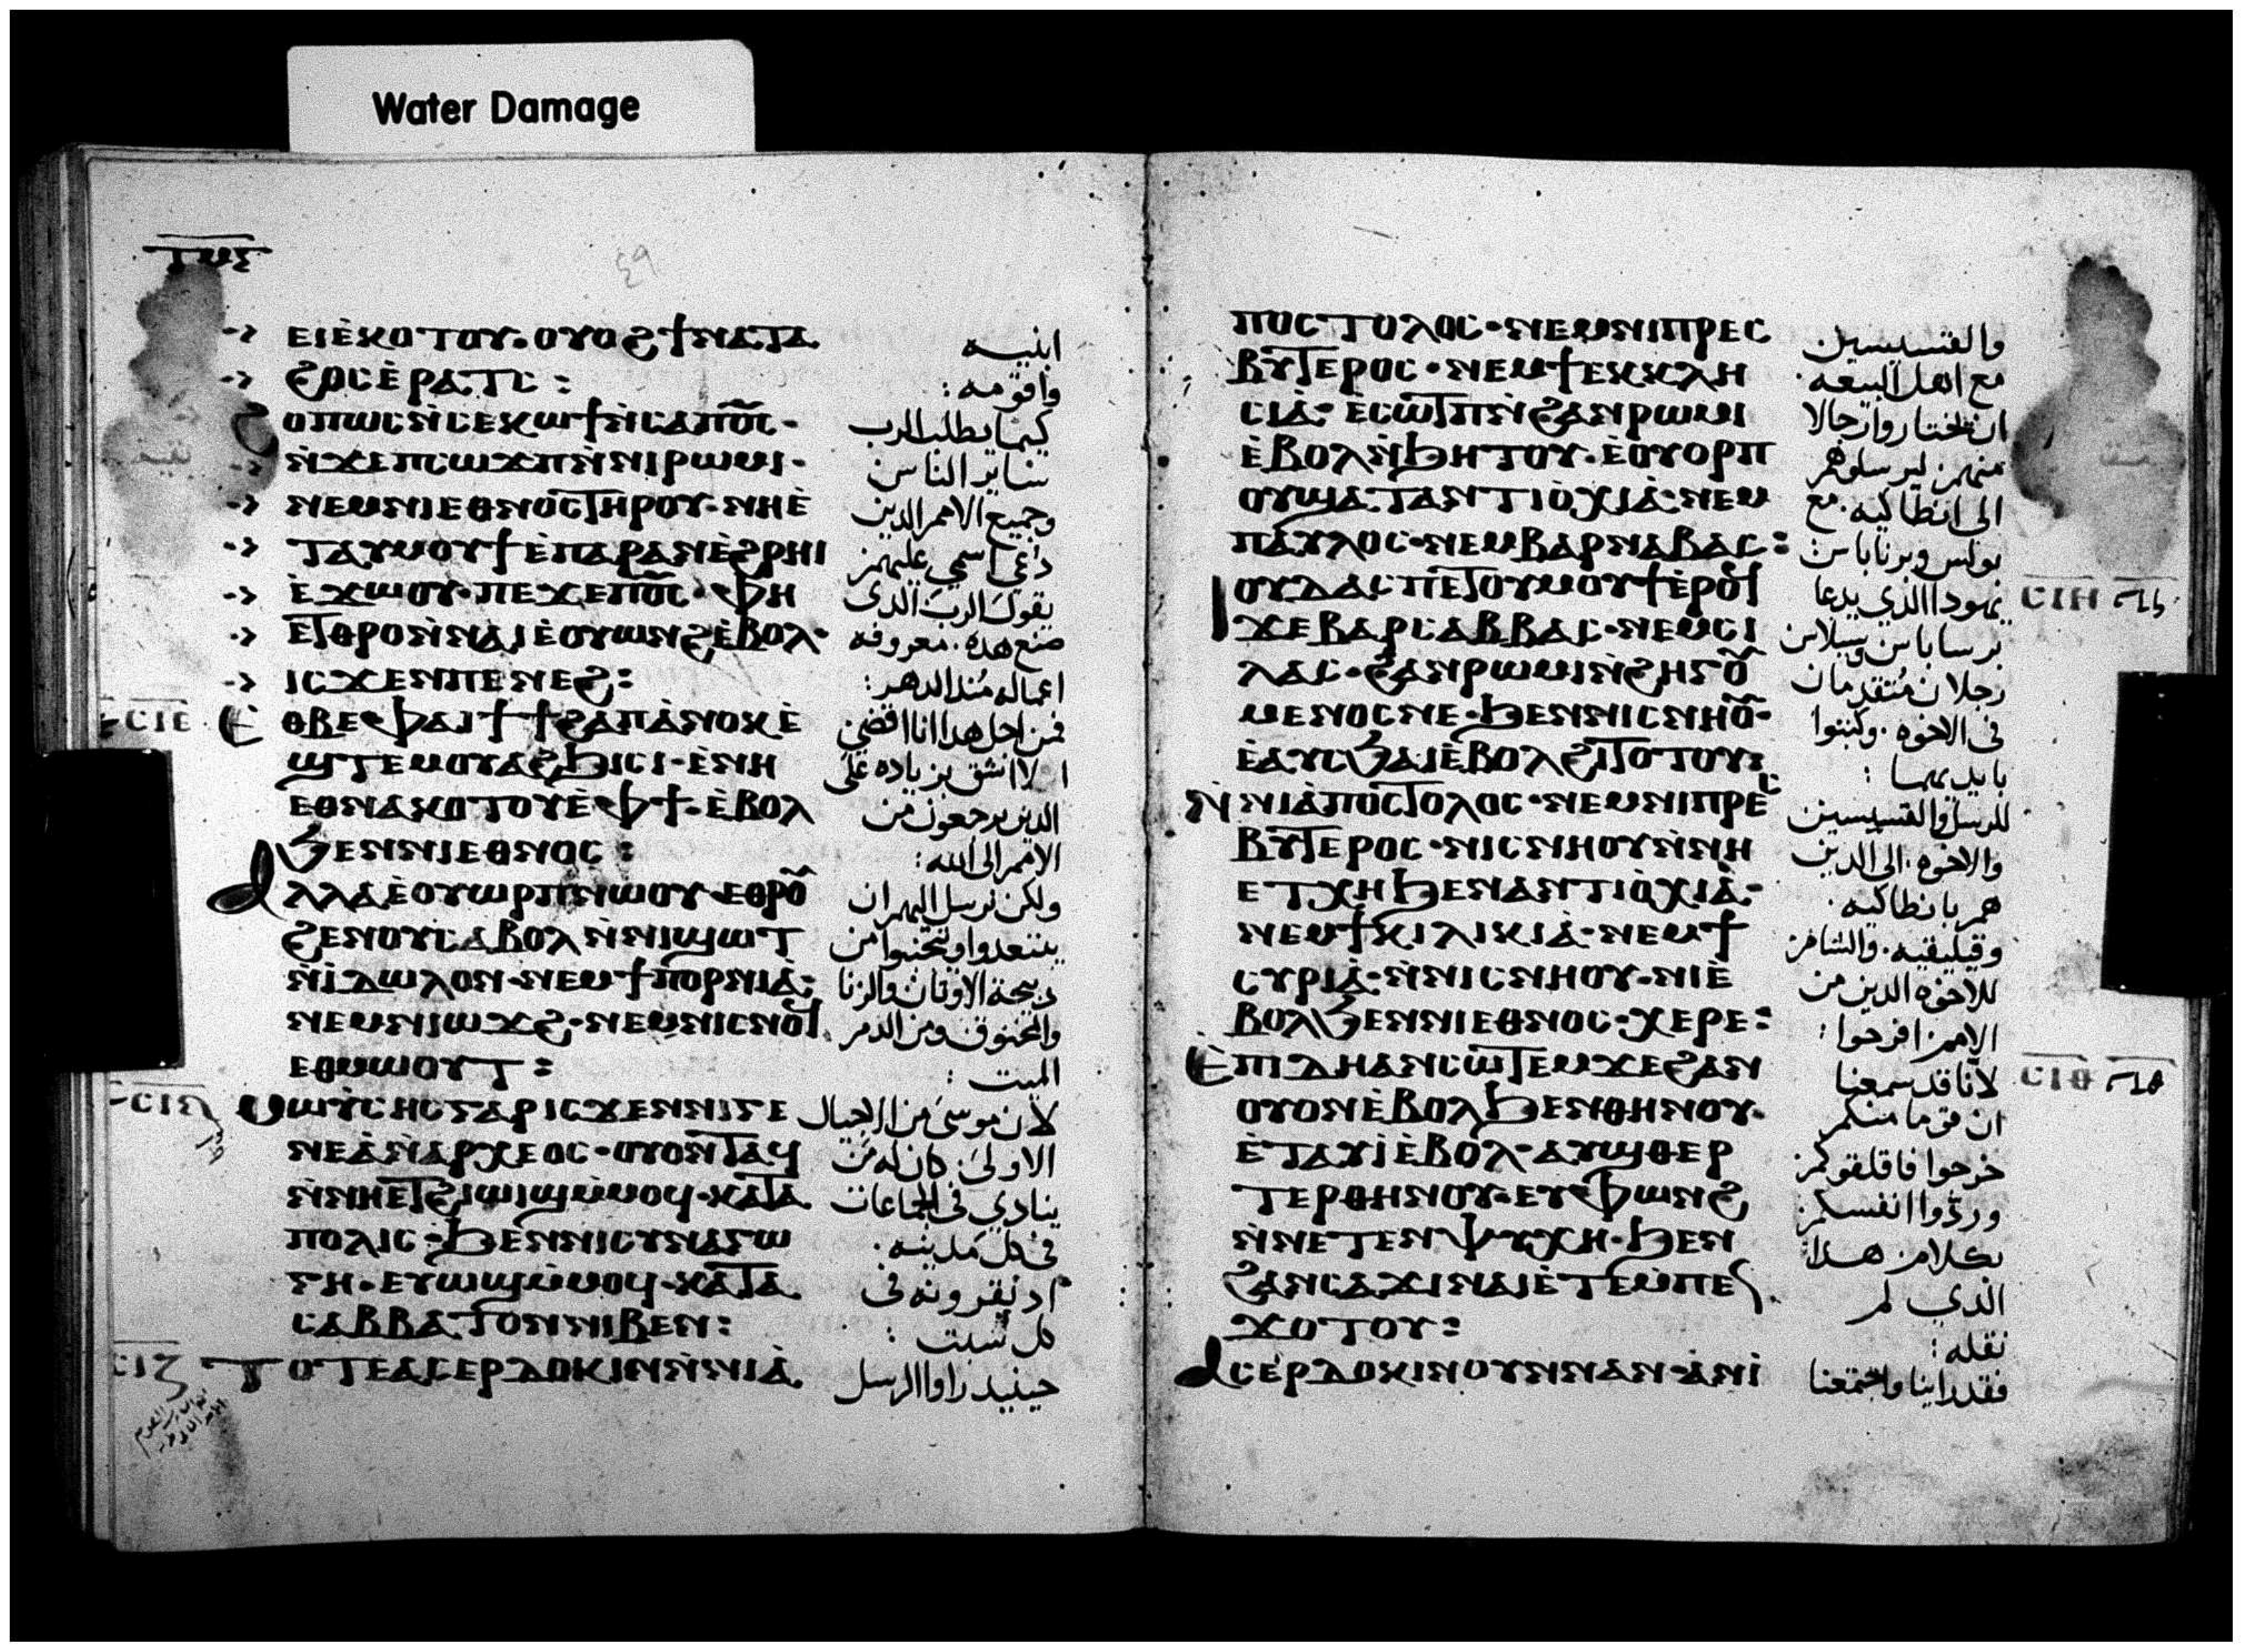 Water Damage
ⲉⲓⲉ̀ⲕⲟⲧⲟⲩ· ⲟⲩⲟϩ ϯⲛⲁⲧⲁ
ϩⲟⲥ ⲉ̀ⲣⲁⲧⲥ:
ϩⲟⲡⲱⲥ ⲛ̀ⲥⲉⲕⲱϯ ⲛ̀ⲥⲁ ⲡⲟ̅ⲥ̅·
ⲛ̀ϫⲉ ⲡⲥⲱϫⲡ ⲛ̀ⲛⲓⲣⲱⲙⲓ·
ⲛⲉⲙ ⲛⲓⲉⲑⲛⲟⲥ ⲧⲏⲣⲟⲩ· ⲛⲏⲉ̀
ⲧⲁⲩⲙⲟⲩϯ ⲉ̀ⲡⲁⲣⲁⲛ ⲉ̀ϩⲣⲏⲓ
ⲉ̀ϫⲱⲟⲩ· ⲡⲉϫⲉ ⲡⲟ̅ⲥ̅· ⲫⲏ
ⲉⲧⲑⲣⲟ ⲛ̀ⲛⲁⲓ ⲉ̀ⲟⲩⲱⲛϩ ⲉ̀ⲃⲟⲗ·
ⲓⲥϫⲉⲛ ⲡⲉⲛⲉϩ:
ⲉ̀ⲑⲃⲉⲫⲁⲓ ϯϯϩⲁⲡ ⲁ̀ⲛⲟⲕ ⲉ̀
ϣⲧⲉⲙⲟⲩⲁϩϧⲓⲥⲓ· ⲉ̀ⲛⲏ
ⲉⲑⲛⲁⲕⲟⲧⲟⲩ ⲉ̀ⲫϯ· ⲉ̀ⲃⲟⲗ
ϧⲉⲛ ⲛⲓⲉⲑⲛⲟⲥ:
ⲁⲗⲗⲁ ⲉ̀ⲟⲩⲱⲣⲡ ⲛⲱⲟⲩ ⲉⲑⲣⲟⲩ
ϩⲉⲛⲟⲩ ⲥⲁⲃⲟⲗ ⲛ̀ⲛⲓϣⲱⲧ
ⲛ̀ⲓ̀ⲇⲱⲗⲟⲛ· ⲛⲉⲙ ϯⲡⲟⲣⲛⲓⲁ̀:
ⲛⲉⲙ ⲛⲓⲱϫϩ· ⲛⲉⲙ ⲛⲓⲥⲛⲟϥ
ⲉⲑⲙⲱⲟⲩⲧ:
ⲙⲱⲩ̀ⲥⲏⲥ ⲅⲁⲣ ⲓⲥϫⲉⲛ ⲛⲓⲅⲉ
ⲛⲉⲁ̀ ⲛ̀ⲁⲣⲭⲉⲟⲥ· ⲟⲩⲟⲛⲧⲁϥ
ⲛ̀ⲛⲏⲉⲧϩⲓⲱⲓϣ ⲙ̀ⲙⲟϥ· ⲕⲁⲧⲁ
ⲡⲟⲗⲓⲥ· ϧⲉⲛ ⲛⲓⲥⲩⲛⲁⲅⲱ
ⲅⲏ· ⲉⲩⲱϣ ⲙ̀ⲙⲟϥ· ⲕⲁⲧⲁ
ⲥⲁⲃⲃⲁⲧⲟⲛ ⲛⲓⲃⲉⲛ:
ⲧⲟⲧⲉ ⲁⲥⲉⲣⲇⲟⲕⲓⲛ ⲛ̀ⲛⲓⲁ̀
ابنيه
واقومه:
كيما يطلب الرب
ساير الناس
وجميع الامم الدين
دعي اسمي عليهم
يقول الرب الدى
صنع هده. معروفه
اعماله مند الدهر:
فمن اجل هدا انا اقضي
الا نشق بزياده على
الدين يرجعون من
الامم الى الله:
ولكن نرسل اليهم ان
يبتعدوا ويتجنبوا من
دبيحة الاوتان والزنا
والمخنوق ومن الدم
الميت:
لان موسى من الاجيال
الاولى. كان له من
ينادي في الجماعات
في كل مدينه.
اد نقرونه في
كل سبت:
حينيد راوا الرسل
ⲥⲓⲉ
ⲥⲓⲍ
ⲡⲟⲥⲧⲟⲗⲟⲥ· ⲛⲉⲙ ⲛⲓⲡⲣⲉⲥ
ⲃⲩⲧⲉⲣⲟⲥ· ⲛⲉⲙ ϯⲉⲕⲕⲗⲏ
ⲥⲓⲁ̀· ⲉ̀ⲥⲱⲧⲡ ⲛ̀ϩⲁⲛⲣⲱⲙⲓ
ⲉ̀ⲃⲟⲗ ⲛ̀ϧⲏⲧⲟⲩ· ⲉ̀ⲟⲩⲟⲣⲡ
ⲟⲩ ϣⲁ ⲧⲁⲛⲧⲓⲟ̀ⲭⲓⲁ̀· ⲛⲉⲙ
ⲡⲁⲩⲗⲟⲥ· ⲛⲉⲙ ⲃⲁⲣⲛⲁⲃⲁⲥ:
ⲓⲟⲩⲇⲁⲥ ⲡⲉⲧⲟⲩⲙⲟⲩϯ ⲉ̀ⲣⲟϥ
ϫⲉ ⲃⲁⲣⲥⲁⲃⲃⲁⲥ· ⲛⲉⲙ ⲥⲓ
ⲗⲁⲥ· ϩⲁⲛⲣⲱⲙⲓ ⲛ̀ϩⲏⲅⲟⲩ
ⲙⲉⲛⲟⲥ ⲛⲉ· ϧⲉⲛ ⲛⲓⲥⲛⲏⲟⲩ·
ⲉ̀ⲁⲩⲥϧⲁⲓ ⲉ̀ⲃⲟⲗ ϩⲓⲧⲟⲧⲟⲩ:
ⲛ̀ⲛⲓⲁ̀ⲡⲟⲥⲧⲟⲗⲟⲥ· ⲛⲉⲙ ⲛⲓⲡⲣⲉⲥ
ⲃⲩⲧⲉⲣⲟⲥ· ⲛⲓⲥⲛⲏⲟⲩ ⲛ̀ⲛⲏ
ⲉⲧⲭⲏ ϧⲉⲛ ⲁⲛⲧⲓⲟ̀ⲭⲓⲁ̀·
ⲛⲉⲙ ϯⲕⲓⲗⲓⲕⲓⲁ̀· ⲛⲉⲙ ϯ
ⲥⲩⲣⲓⲁ̀· ⲛ̀ⲛⲓⲥⲛⲏⲟⲩ· ⲛⲓⲉ̀
ⲃⲟⲗ ϧⲉⲛ ⲛⲓⲉⲑⲛⲟⲥ· ⲭⲉⲣⲉ:
ⲉ̀ⲡⲓⲇⲏ ⲁⲛⲥⲱⲧⲉⲙ ϫⲉ ϩⲁⲛ
ⲟⲩⲟⲛ ⲉ̀ⲃⲟⲗ ϧⲉⲛ ⲑⲏⲛⲟⲩ·
ⲉ̀ⲧⲁⲩⲓ̀ ⲉ̀ⲃⲟⲗ· ⲁⲩϣⲑⲉⲣ
ⲧⲉⲣ ⲑⲏⲛⲟⲩ· ⲉⲩⲫⲱⲛϩ
ⲛ̀ⲛⲉⲧⲉⲛⲯⲩⲭⲏ· ϧⲉⲛ
ϩⲁⲛⲥⲁϫⲓ ⲛⲁⲓ ⲉ̀ⲧⲉⲙ̀ⲡⲉⲛ
ϫⲟⲧⲟⲩ:
ⲁⲥⲉⲣⲇⲟⲕⲓⲛ ⲟⲩⲛ ⲛⲁⲛ· ⲁ̀ⲛⲓ̀
والقسيسين
مع اهل البيعه.
ان يختاروا رجالا
منهم. ليرسلوهم
الى انطاكيه. مع
بولس وبرناباس:
يهودا الذي يدعا
برساباس وسيلاس
رجلان متقدمان
في الاخوه. وكتبوا
بايديهما:
للرسل والقسيسين
والاخوه. الى الدين
هم بانطاكيه.
وقيليقيه. والشام
للاخوه الدين من
الامم. افرحوا:
لانا قد سمعنا
ان قوما منكم
خرجوا فاقلقوكم
وردوا انفسكم
بكلام هدا
الذي لم
نقله:
فقد راينا واجتمعنا
ⲥⲓⲏ
ⲥⲓⲑ